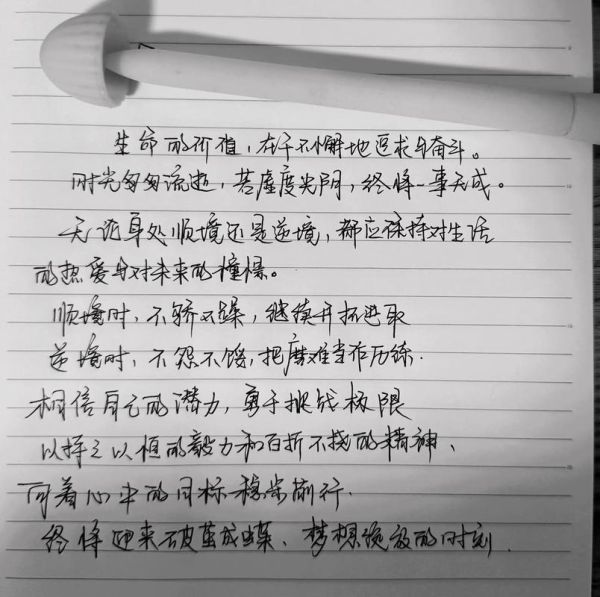 生命的价值，在于不懈地追求与奋斗。
时光匆匆流逝，若虚度光阴，终将一事无成。
无论身处顺境还是逆境，都应保持对生活
的热爱与对未来的憧憬。
顺境时，不骄不躁，继续开拓进取
逆境时，不怨不馁，把磨难当作历练.
相信自己的潜力，勇于挑战极限
以持之以恒的毅力和百折不挠的精神、
向着心中的目标稳步前行.
终将迎来破茧成蝶、梦想绽放的时刻.